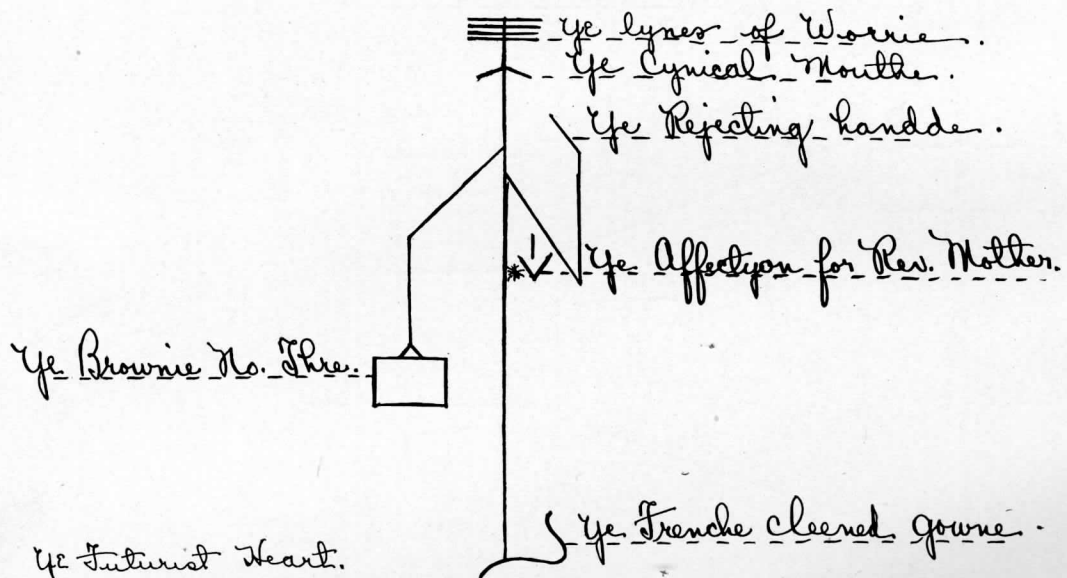 Ye lynes of Worrie.
Ye Cynical Mouthe.
Ye Rejecting handde.
Ye Affectyon for Rev. Mother.
Ye Brownie No. Thre.
Ye Frenche cleened gowne.
Ye Futurist Heart.